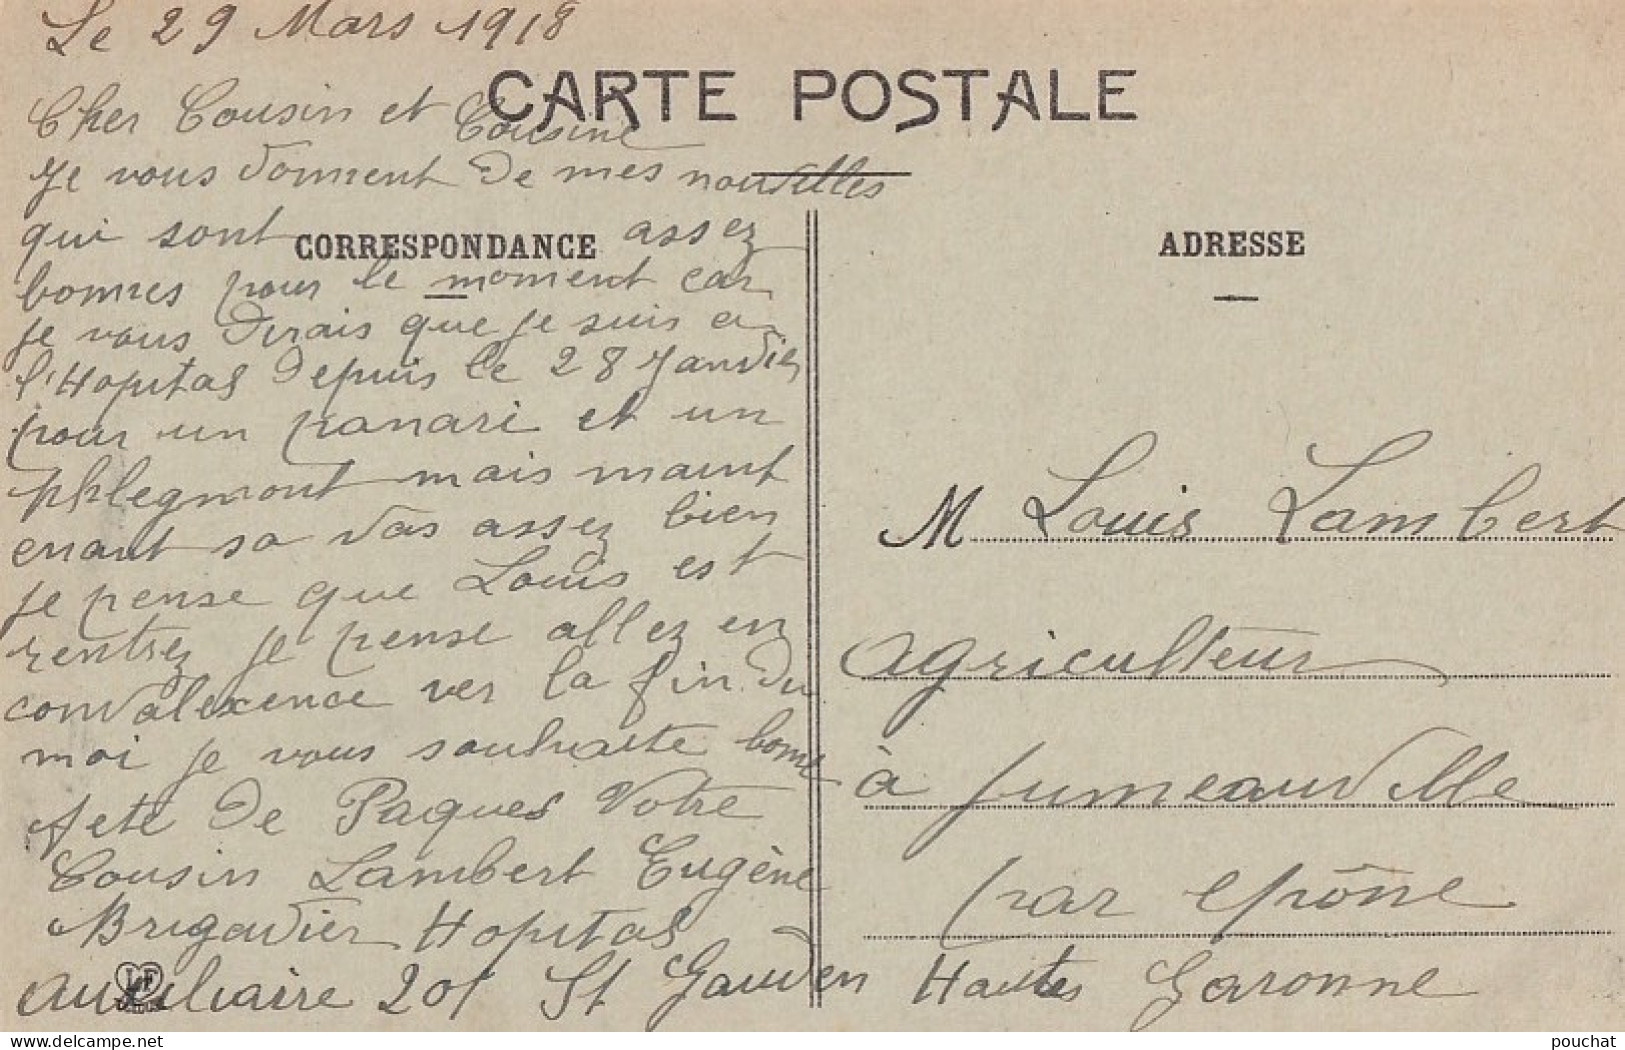 Le 29 Mars 1918
CARTE POSTALE
Cher Cousin et Cousine
Je vous donnent de mes nouvelles
qui sont assez
CORRESPONDANCE
bonnes pour le moment car
je vous dirais que je suis a
l'Hopital depuis le 28 Janvier
pour un panari et un
phlegmont mais maint
enant sa vas assez bien
je pense que Louis est
rentrez je pense allez en
convalexence ver la fin du
moi je vous souhaite bonne
fete de Paques Votre
Cousin Lambert Eugène
Brigadier Hopital
Auxiliaire 201 St Gauden Hautes Garonne
ADRESSE
M Louis Lambert
agriculteur
à Jumeauville
par epône
LF
pouchat